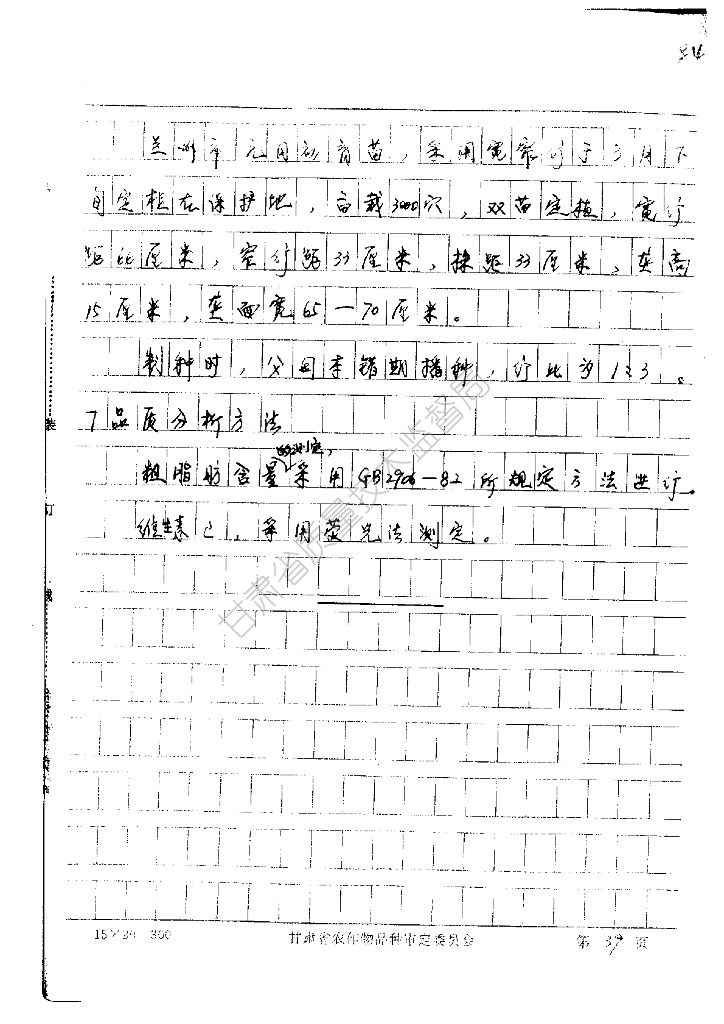 兰州市元月初育苗，采用宽窄行于3月下
旬定植在保护地，亩栽3000穴，双苗定植，宽行
距66厘米，窄行距33厘米，株距33厘米，垄高
15厘米，垄面宽65—70厘米。
制种时，父母本错期播种，行比为1:3。
7 品质分析方法
的测定，
粗脂肪含量采用GB2906—82所规定方法进行。
维生素C，采用荧光法测定。
甘肃省质量技术监督局
装
订
15×20 300
甘肃省农作物品种审定委员会
第 39 页